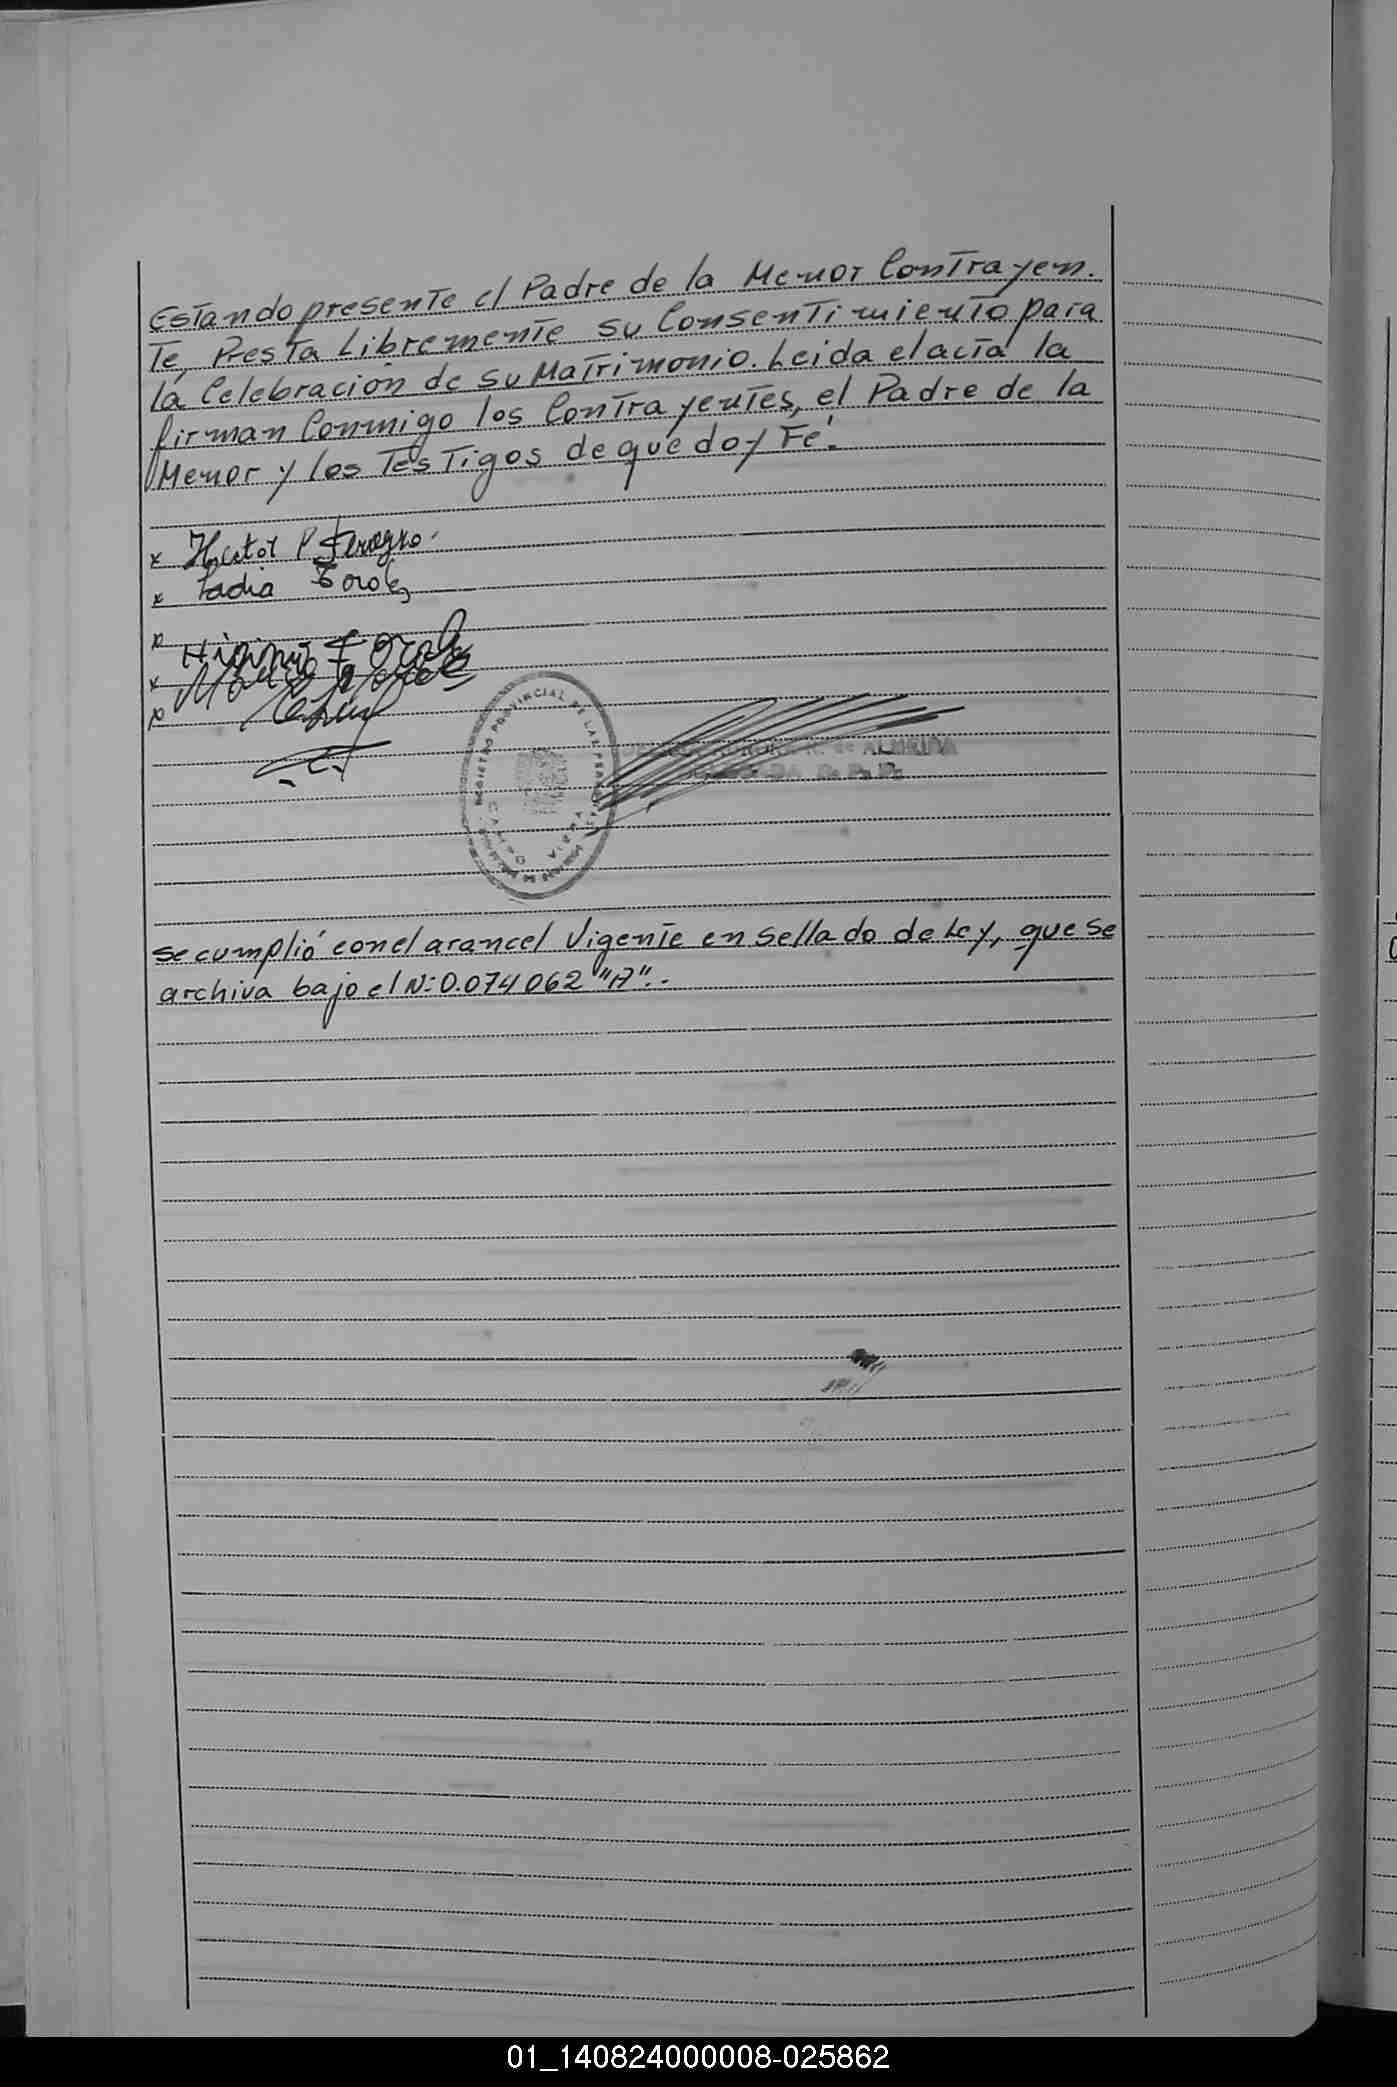 Estando presente el Padre de la Menor Contrayen.
te, Presta Libremente su Consentimiento para
la Celebración de su Matrimonio. Leida el acta la
firman Conmigo los Contrayentes, el Padre de la
Menor y los Testigos de que doy Fé.
x Hector P
x Nadia
x
Higinio
x
x
REGISTRO PROVINCIAL DE LAS PERSONAS
R. de ALMEIDA
se cumplió con el arancel Vigente en sellado de Ley, que se
archiva bajo el N: 0.074062 "A".-
01_140824000008-025862